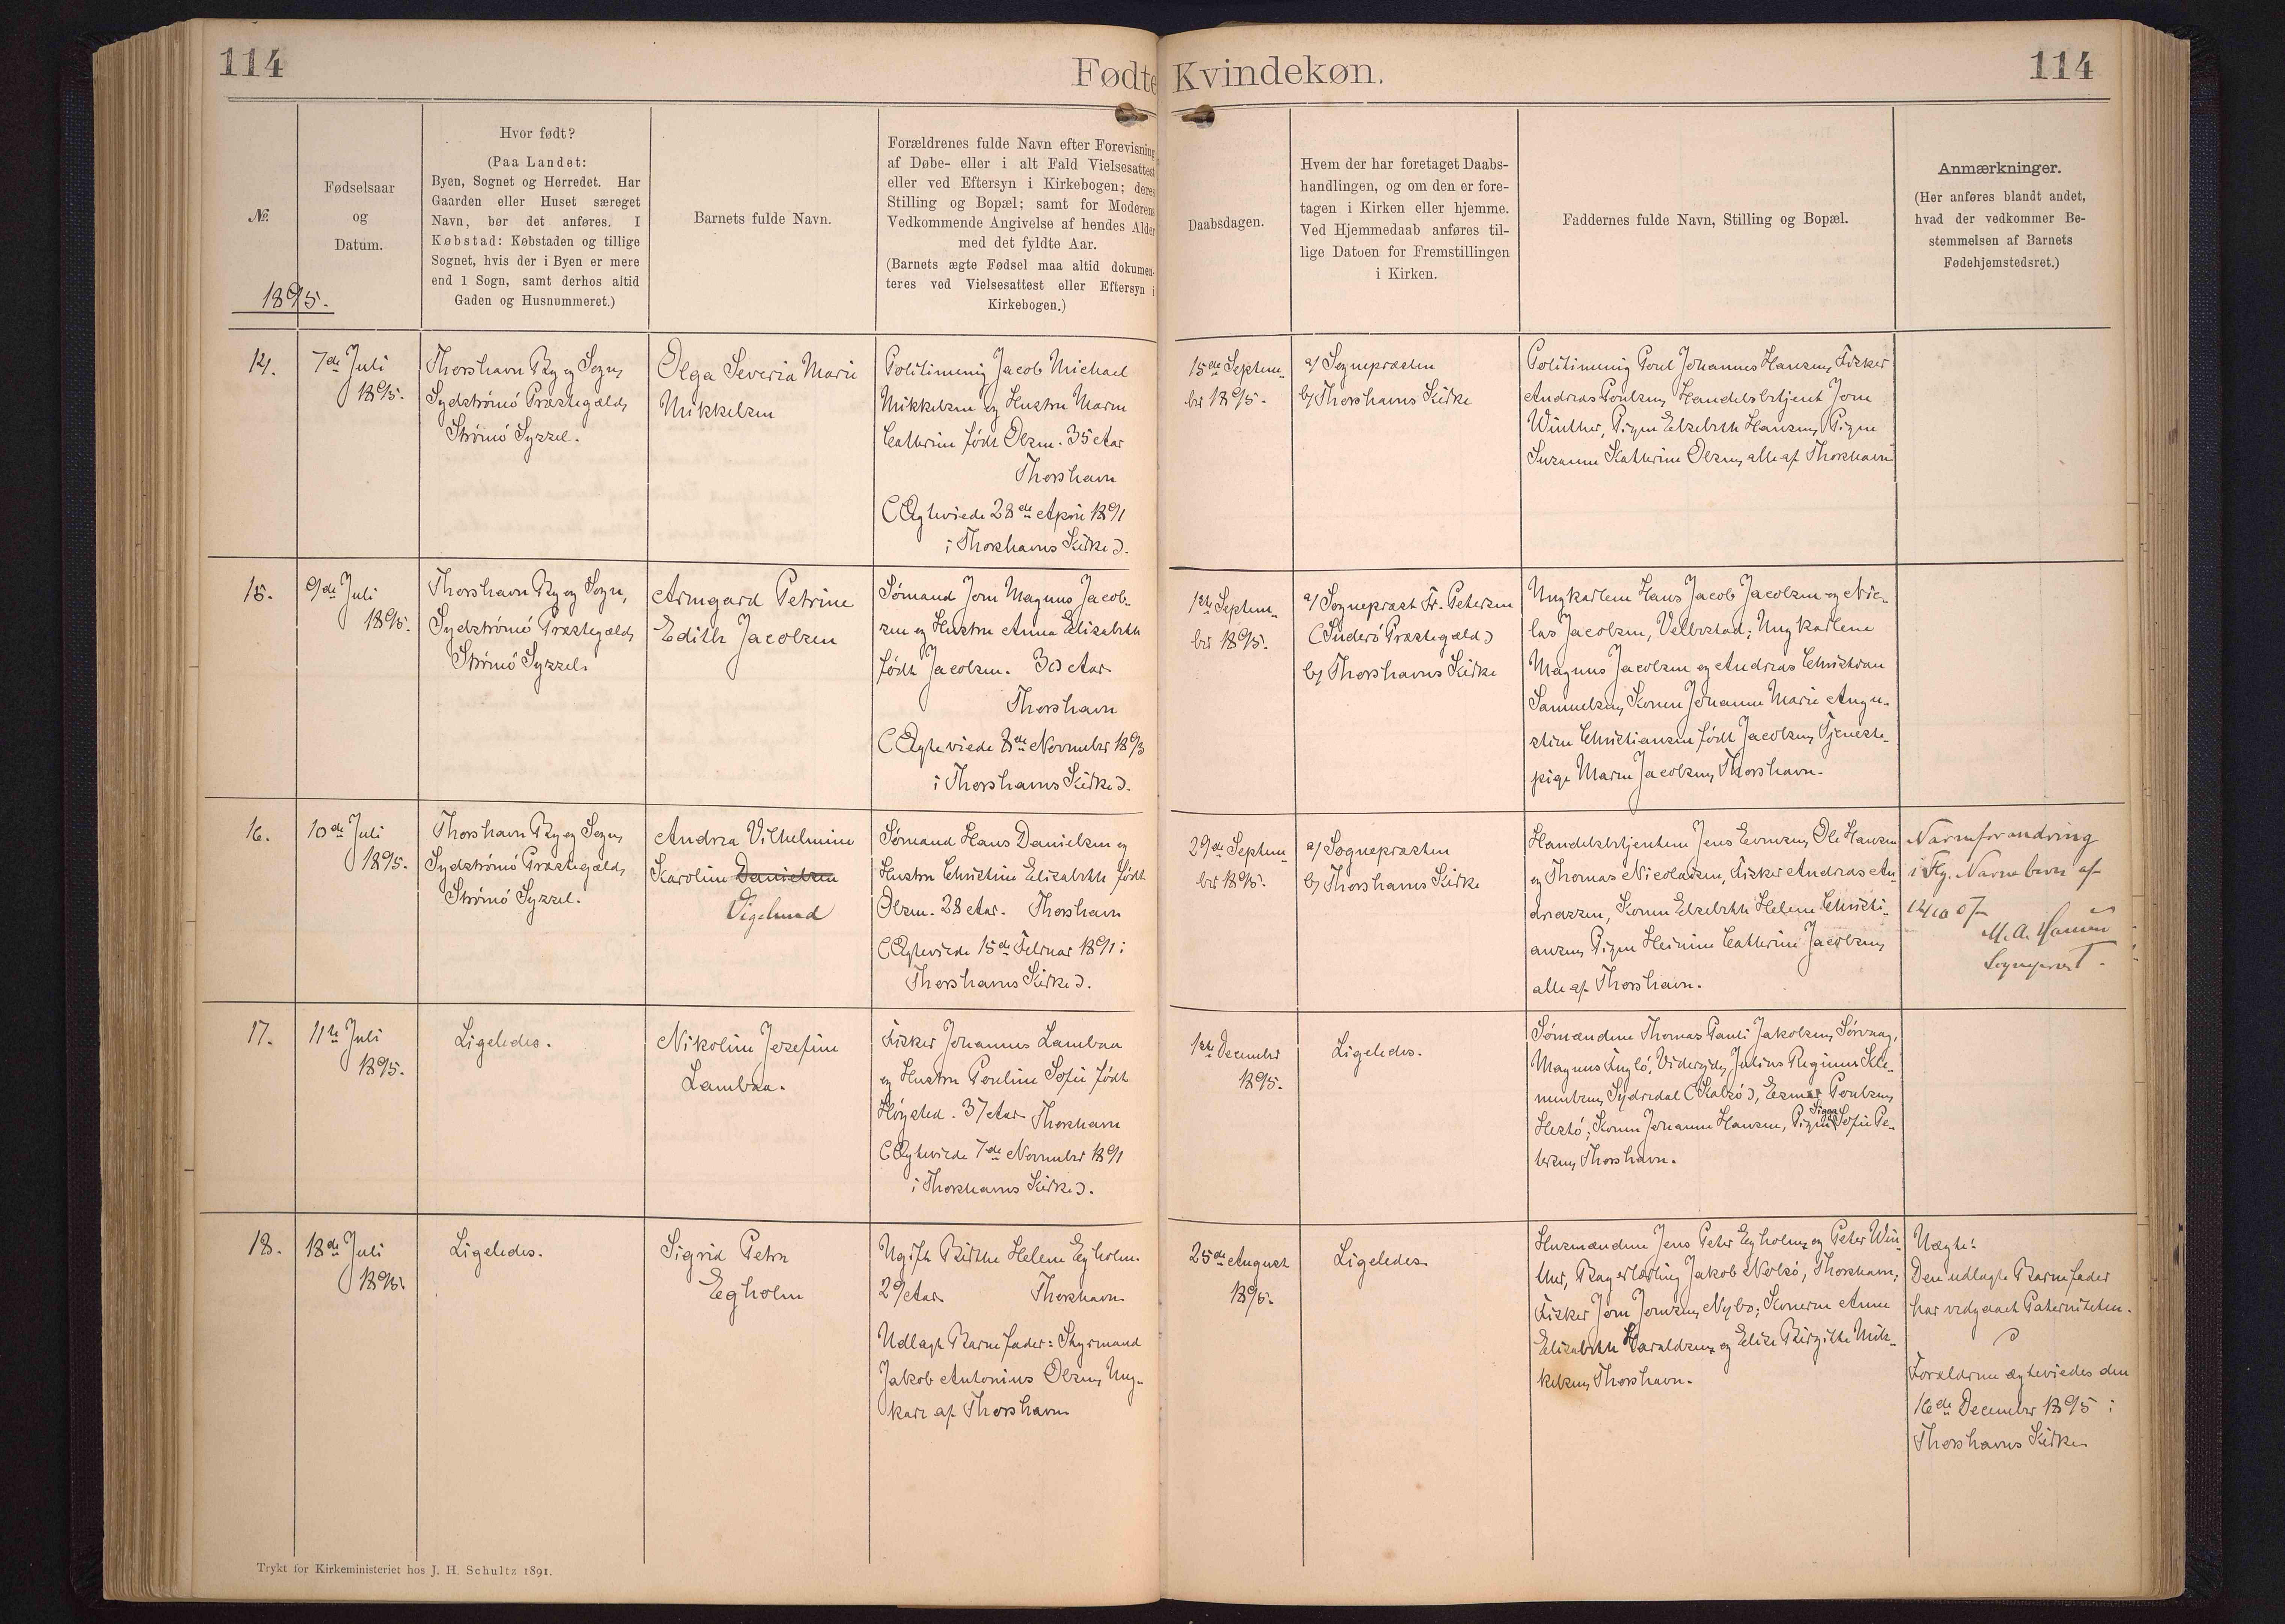 114
Fødte Kvindekøn.
114
№.
1895.
Fødselsaar
og
Datum.
Hvor født?
(Paa Landet:
Byen, Sognet og Herredet. Har
Gaarden eller Huset særeget
Navn, bør det anføres. I
Købstad: Købstaden og tillige
Sognet, hvis der i Byen er mere
end 1 Sogn, samt derhos altid
Gaden og Husnummeret.)
Barnets fulde Navn.
Forældrenes fulde Navn efter Forevisning
af Døbe- eller i alt Fald Vielsesattest
eller ved Eftersyn i Kirkebogen; deres
Stilling og Bopæl; samt for Moderens
Vedkommende Angivelse af hendes Alder
med det fyldte Aar.
(Barnets ægte Fødsel maa altid dokumen-
teres ved Vielsesattest eller Eftersyn i
Kirkebogen.)
Daabsdagen.
Hvem der har foretaget Daabs-
handlingen, og om den er fore-
tagen i Kirken eller hjemme.
Ved Hjemmedaab anføres til-
lige Datoen for Fremstillingen
i Kirken.
Faddernes fulde Navn, Stilling og Bopæl.
Anmærkninger.
(Her anføres blandt andet,
hvad der vedkommer Be-
stemmelsen af Barnets
Fødehjemstedsret.)
14.
7de Juli
1895.
Thorshavn By og Sogn,
Sydstrømø Præstegæld,
Strømø Syssel.
Olga Severia Marie
Mikkelsen
Politimmig Jacob Michael
Mikkelsen og Hustru Maren
Cathrine født Olsen. 35 Aar
Thorshavn
(Ægteviede 28de April 1891
i Thorshavns Kirke).
15de Septem-
ber 1895.
a) Sognepræsten
b) Thorshavns Kirke
Politimmig Poul Johannes Hansen, Fisker
Andreas Poulsen, Handelsbetjent Jørn
Winther, Pigen Elsebeth Hansen, Pigen
Susanne Kathrine Olsen, alle af Thorshavn
15.
9de Juli
1895.
Thorshavn By og Sogn,
Sydstrømø Præstegæld,
Strømø Syssel.
Armgard Petrine
Edith Jacobsen
Sømand Jørn Magnus Jacob-
sen og Hustru Anna Elisabeth
født Jacobsen. 30 Aar
Thorshavn
(Ægteviede 8de November 1893
i Thorshavns Kirke).
1ste Septem-
ber 1895.
a) Sognepræst Fr. Petersen
(Suderø Præstegæld)
b) Thorshavns Kirke
Ungkarlene Hans Jacob Jacobsen og Nic-
las Jacobsen, Velbestad; Ungkarlene
Magnus Jacobsen og Andreas Christian
Samuelsen, Konen Johanne Marie Augu-
stine Christiansen født Jacobsen, Tjeneste-
pige Maren Jacobsen, Thorshavn.
16.
10de Juli
1895.
Thorshavn By og Sogn,
Sydstrømø Præstegæld,
Strømø Syssel.
Andrea Vilhelmine
Karoline Danielsen
Vigelund
Sømand Hans Danielsen og
Hustru Christine Elisabeth født
Olsen. 28 Aar. Thorshavn
(Ægteviede 15de Februar 1891 i
Thorshavns Kirke).
29de Septem-
ber 1895.
a) Sognepræsten
b) Thorshavns Kirke
Handelsbetjentene Jens Evensen, Ole Hansen
og Thomas Nicolaisen, Fisker Andreas An-
dreassen, Konen Elsebeth Helene Christi-
ansen, Pigen Heinine Cathrine Jacobsen,
alle af Thorshavn.
Navneforandring
i Flg. Navnebrev af
12/10 07
Sognepræst.
17.
11te Juli
1895.
Ligeledes.
Nikoline Josefine
Lambaa.
Fisker Johannes Lambaa
og Hustru Pouline Sofie født
Høgsted. 37 Aar Thorshavn
(Ægteviede 7de November 1891
i Thorshavns Kirke).
1ste December
1895.
Ligeledes.
Sømændene Thomas Pauli Jakobsen, Sørvaag,
Magnus Fuglø, Viderejde, Julius Reginus Kle-
mentsen, Sydredal (Kalsø), Esmar Poulsen,
Hestø; Konen Johanne Hansen, Pigen Sigga Sofie Pe-
tersen, Thorshavn.
18.
18de Juli
1895.
Ligeledes.
Sigrid Petra
Egholm
Ugift Birthe Helene Egholm.
29 Aar Thorshavn
Udlagt Barnefader: Styrmand
Jakob Antonius Olsen, Ung-
karl af Thorshavn
25de August
1895.
Ligeledes
Husmændene Jens Peter Egholm, og Peter Win-
ther, Bagerlærling Jakob Nolsø, Thorshavn;
Fisker Jørn Joensen, Nybo; Konerne Anne
Elisabeth Haraldsen, og Elise Birgitte Mik-
kelsen, Thorshavn.
Uægte:
Den udlagte Barnefader
har vedgaaet Paterniteten.
Forældrene ægteviedes den
16de December 1895 i
Thorshavns Kirke
Trykt for Kirkeministeriet hos J. H. Schultz 1891.